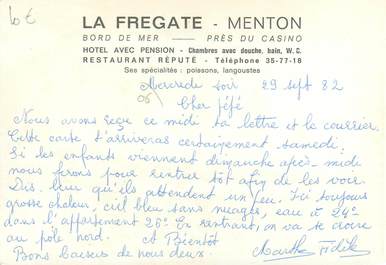 10€
LA FREGATE - MENTON
BORD DE MER — PRÈS DU CASINO
HOTEL AVEC PENSION - Chambres avec douche, bain, W.C.
RESTAURANT RÉPUTÉ - Téléphone 35-77-18
Ses spécialités : poissons, langoustes
Mercredi soir 29 sept 82
06
Cher féfé
Nous avons reçu ce midi ta lettre et le courrier.
Cette carte t'arrivera certainement samedi.
Si les enfants viennent dimanche après-midi
nous ferons pour rentrer tôt afin de les voir.
Dis leur qu'ils attendent un peu. Ici toujours
grosse chaleur, ciel bleu sans nuages, eau à 24°
dans l'appartement 26° En rentrant, on va se croire
au pôle nord. à Bientôt
Bons baisers de nous deux. Marthe